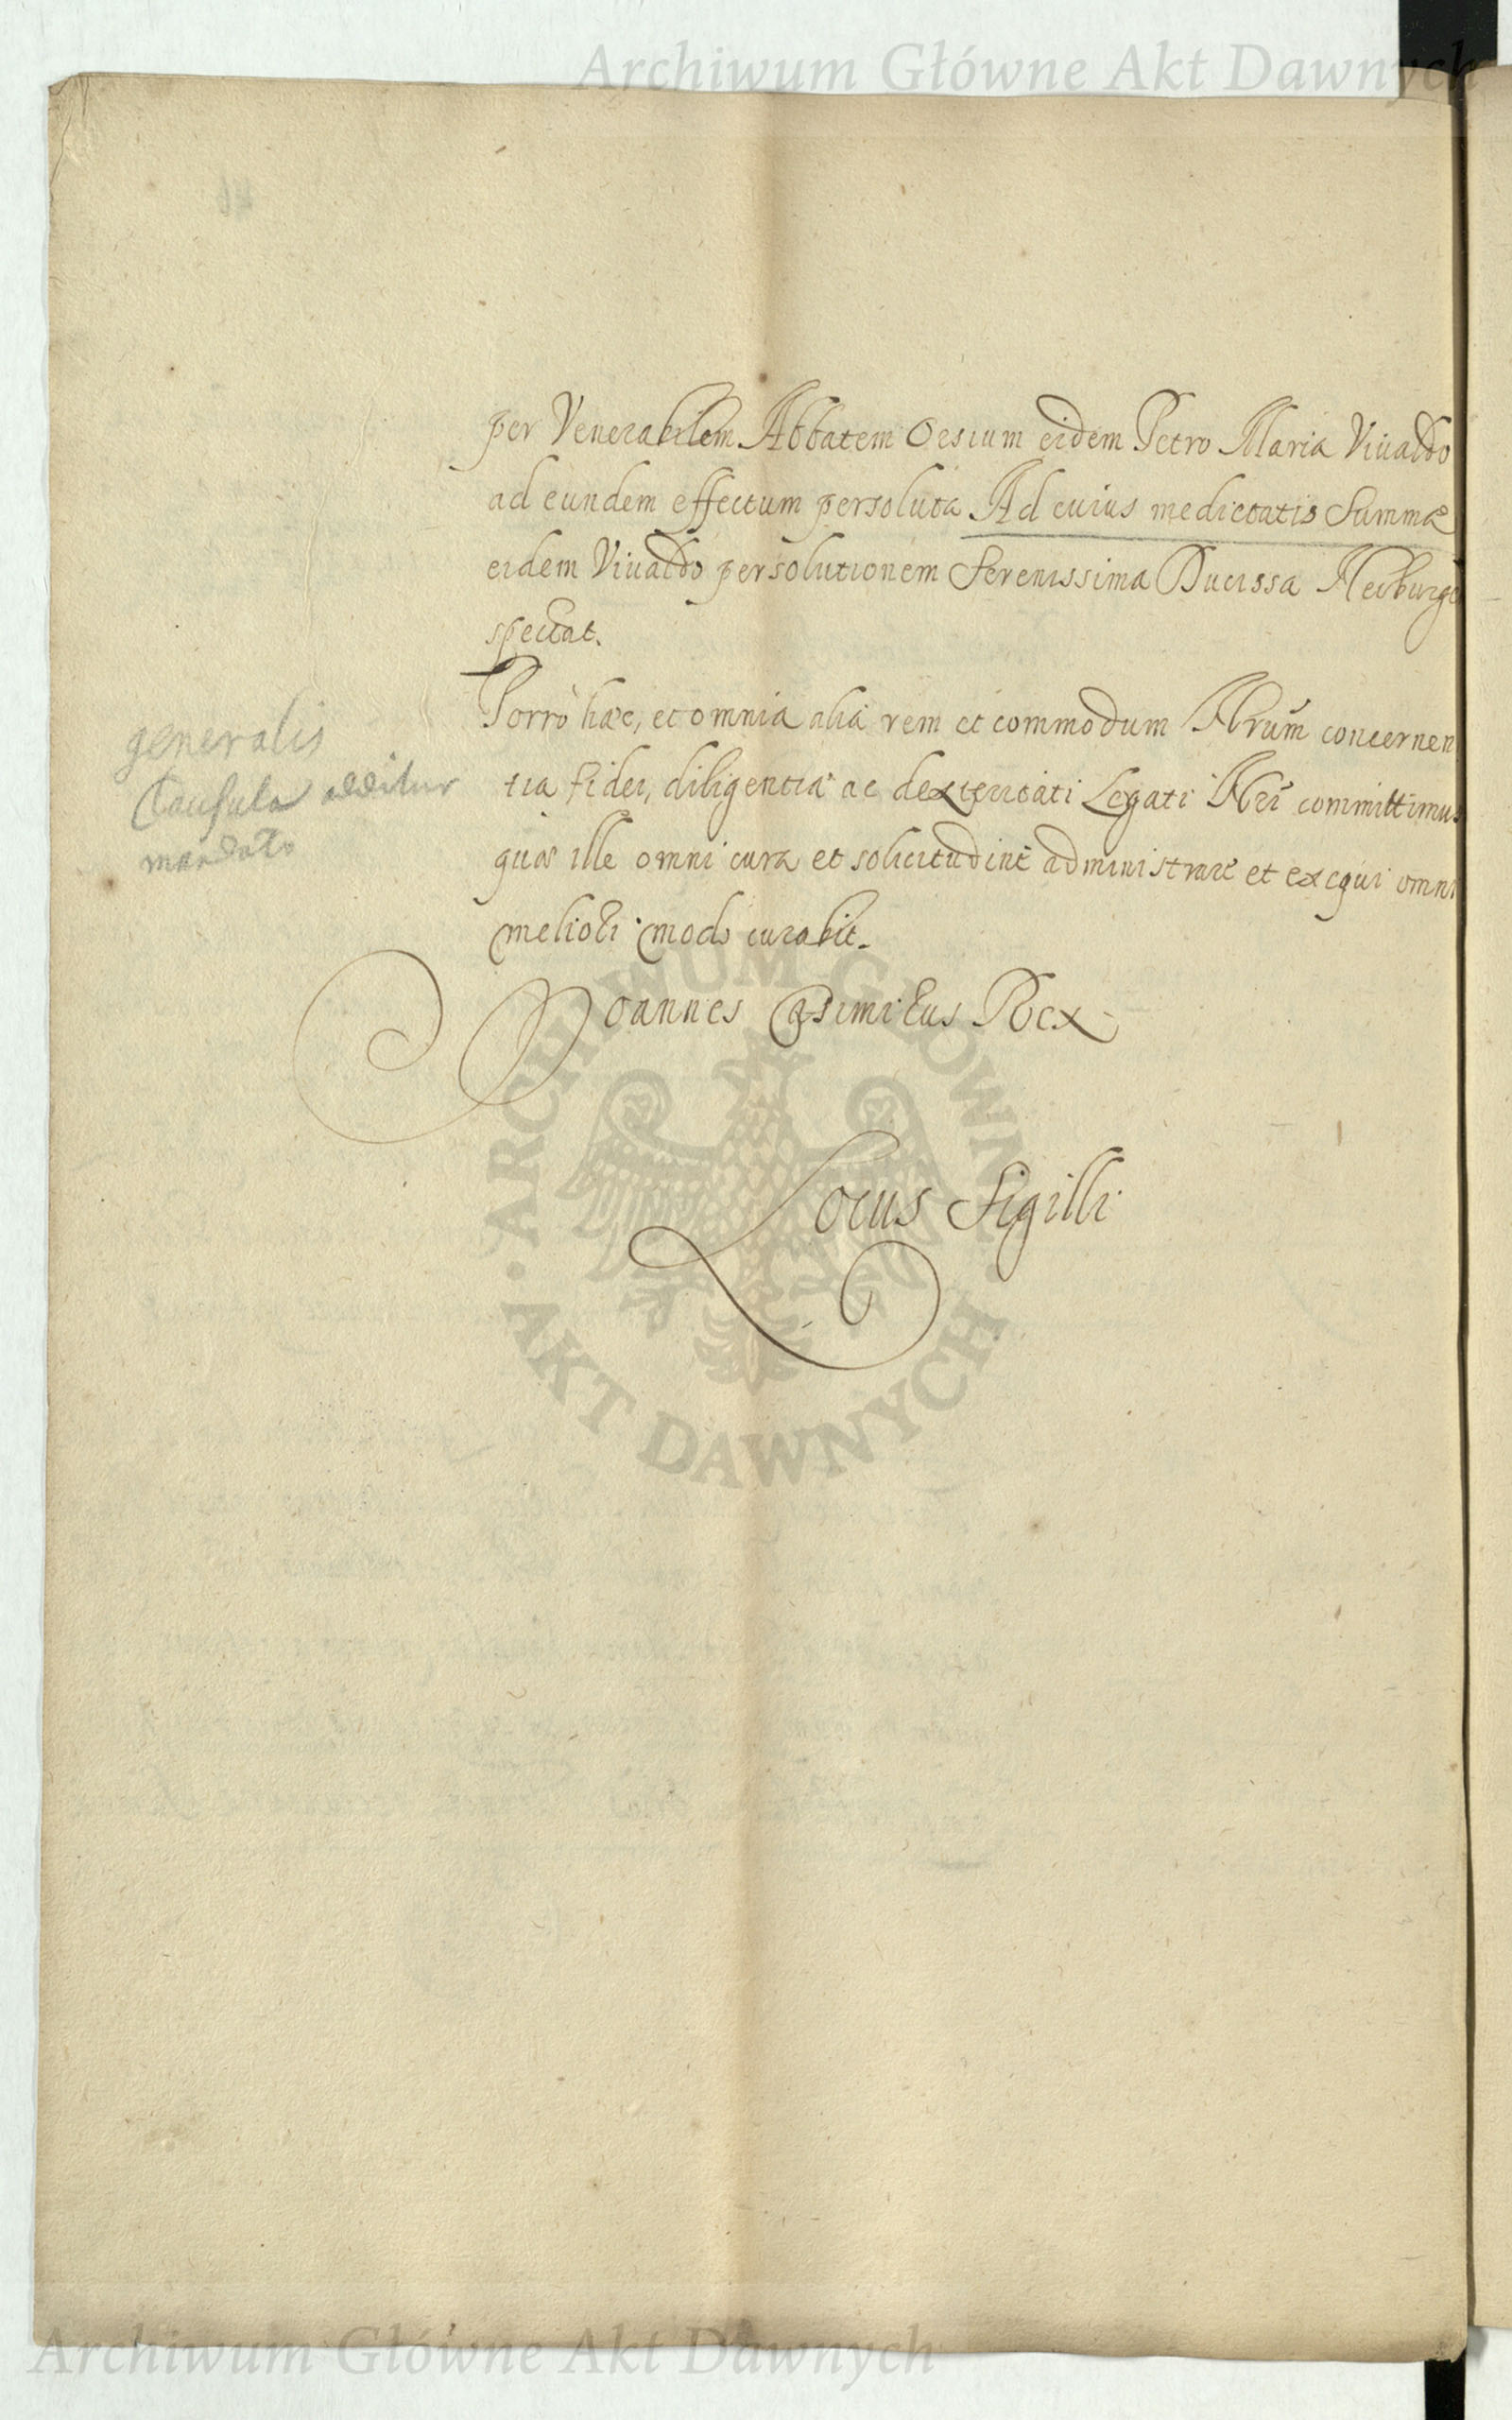 Archiwum Główne Akt Dawnych
per Venerabilem Abbatem Oesium eidem Petro Maria Viualdo
ad eundem effectum persoluta Ad cuius medietatis Summæ
eidem Viualdo persolutionem Serenissima Ducissa Neiburgo
spectat.
Porrò hæc, et omnia alia rem et commodum Nrum concernen
tia fidei, diligentiæ ac dexteritati Legati Nri committimus
quæ ille omni cura et solicitudine administrare et exequi omni
meliori modo curabit.
generalis
Clausula additur
mandato
Joannes Casimirus Rex
Locus Sigilli
ARCHIWUM GŁÓWNE
AKT DAWNYCH
Archiwum Główne Akt Dawnych